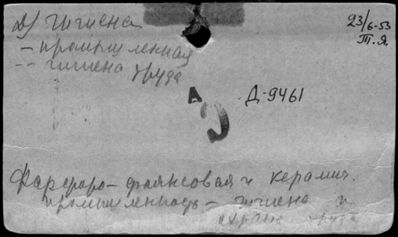 Д) Гигиена
23/6-53
Т.Я.
- промышленная
-- гигиена труда
Д-9461
Фарфоро-фаянсовая и керамич.
промышленность - гигиена и
охрана труда